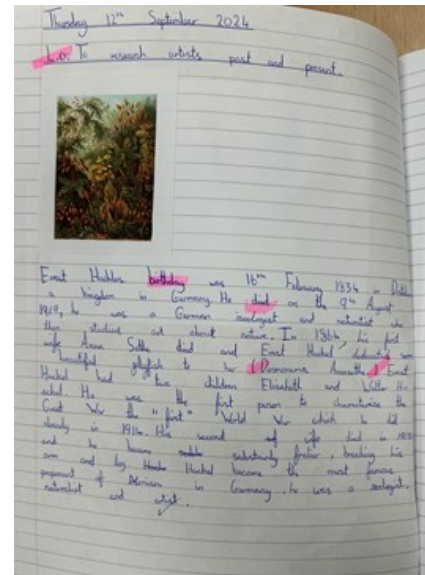 Thursday 12th September 2024
L.O. To research artists past and present.
birthday was 16th February 1834 in
a kingdom in Germany. He died on the 9th August
1919, he was a German zoologist and naturalist who
then studied art about nature. In 1864, his first
wife Anna Sethe died and Ernst Huckel dedicated some
beautiful jellyfish to her Ernst
Huckel had two children Elizabeth and Walter
He was the first person to characterize the
Great War the "first" World War which he did
in 1914. His second wife died in 1915
and he became substantially frailer, breaking his
arm and leg Huckel became the most famous
in Germany. he was a zoologist,
naturalist and artist.